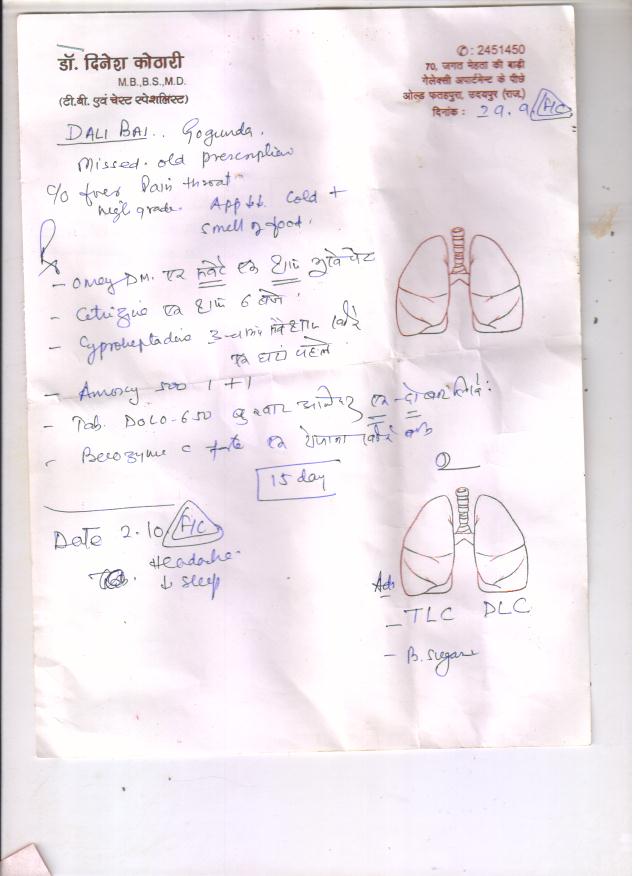 डॉ. दिनेश कोठारी
M.B.,B.S.,M.D.
(टी.बी. एवं चेस्ट स्पेशलिस्ट)
✆: 2451450
70, जगत मेहता की बाड़ी
गेलेक्सी अपार्टमेन्ट के पीछे
ओल्ड फतहपुरा, उदयपुर (राज.)
दिनांक : 29.9
DALI BAI.. Gogunda.
Missed old prescription
c/o fever Pain throat
App ↓↓ Cold +
smell of food.
- Omey DM. एक सवेरे एक शाम भूखे पेट
- Cetrizine एक शाम 6 बजे
- Cyproheptadine 3-
एक घंटा पहले
- Amoxy 500 1 + 1
- Tab. DOLO-650 बुखार
- Becozyme C forte एक रोजाना
15 day
Date 2.10
Headache
↓ sleep
Adv
- TLC DLC
- B. Sugar